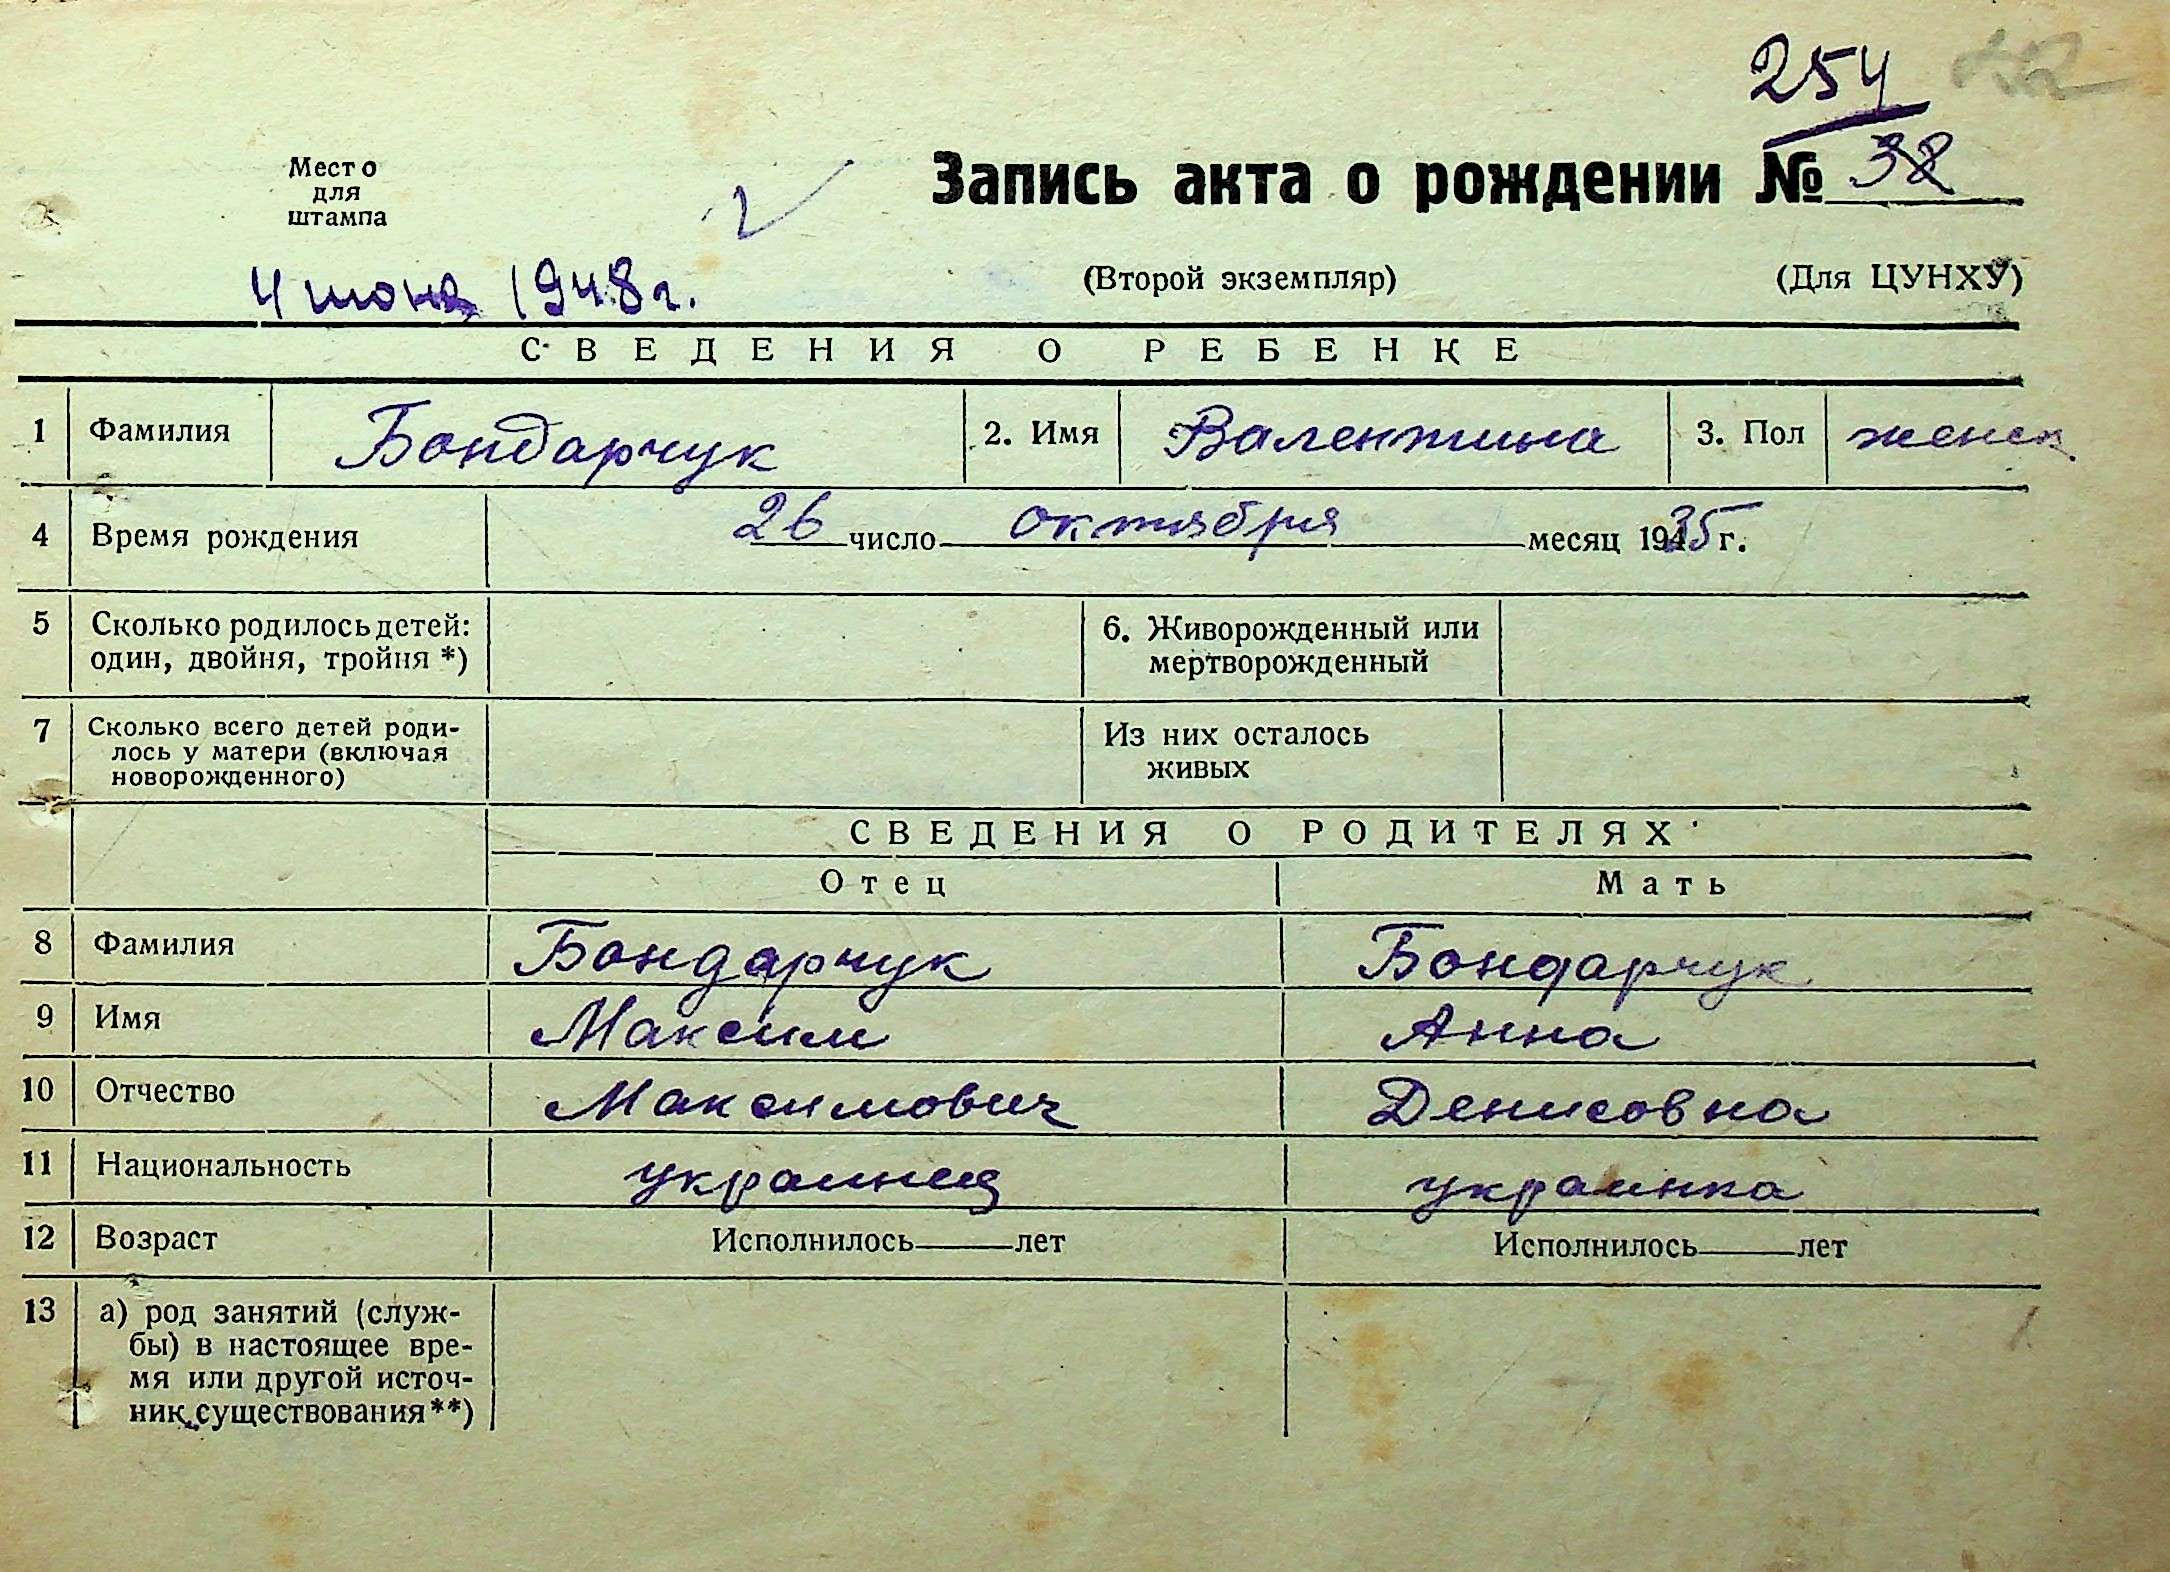 254
Место
для
штампа
Запись акта о рождении № 38
4 июня 1948 г.
(Второй экземпляр)
(Для ЦУНХУ)
СВЕДЕНИЯ О РЕБЕНКЕ
1 Фамилия Бондарчук 2. Имя Валентина 3. Пол женск
4 Время рождения 26 число октября месяц 1935 г.
5 Сколько родилось детей: 6. Живорожденный или
один, двойня, тройня *) мертворожденный
7 Сколько всего детей роди- Из них осталось
лось у матери (включая живых
новорожденного)
СВЕДЕНИЯ О РОДИТЕЛЯХ
Отец Мать
8 Фамилия Бондарчук Бондарчук
9 Имя Максим Анна
10 Отчество Максимович Денисовна
11 Национальность украинец украинка
12 Возраст Исполнилось лет Исполнилось лет
13 а) род занятий (служ-
бы) в настоящее вре-
мя или другой источ-
ник существования**)